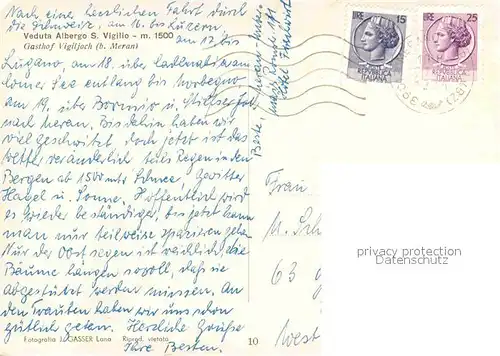 Nach einer herrlichen Fahrt durch
die Schweiz am 16. bis Luzern,
Veduta Albergo S. Vigilio - m. 1500
Gasthof Vigiljoch (b. Meran)
am 17 bis
Lugano, am 18. über am
Comer See entlang bis Morbegno
am 19. über Bormio u. Stilfser Joch
nach Meran. Bis dahin haben wir
viel geschwitzt doch jetzt ist das
Wetter veränderlich teils Regen in den
Bergen ab 1500 mtr Schnee. Gewitter
Hagel u. Sonne. Hoffentlich wird
es wieder beständiger, bis jetzt kann
man nur teilweise spazieren gehen.
Nur der Obstsegen ist reichlich, die
Bäume hängen so voll, daß sie
abgestützt werden müssen. An
den Trauben haben wir uns schon
gütlich getan. Herzliche Grüße
Ihre Besten.
Fotografia L. GASSER Lana Riprod. vietata
10
LIRE 15
REPVBBLICA
ITALIANA
LIRE 25
REPVBBLICA
ITALIANA
Frau
M. Sch
63
West
privacy protection
Datenschutz